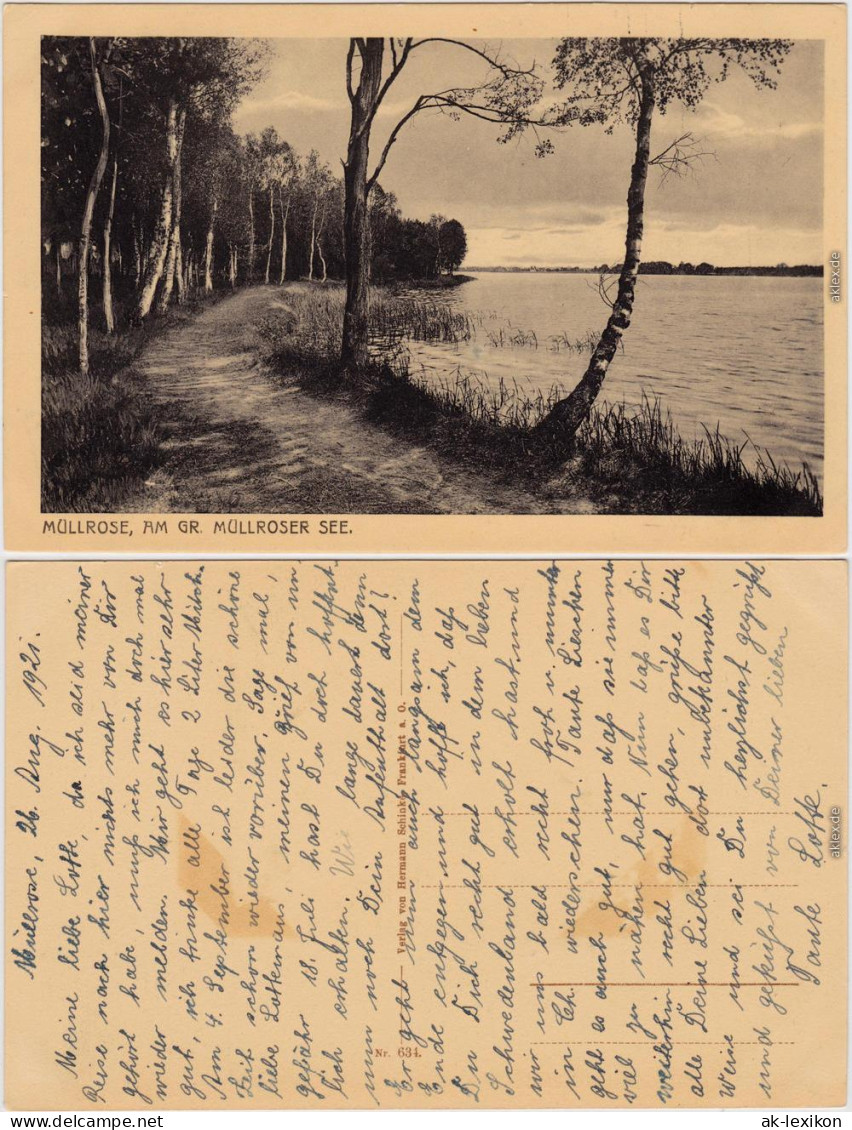 MÜLLROSE, AM GR. MÜLLROSER SEE.
Müllrose, 26. Aug. 1921.
Meine liebe Lotte, da ich seid meiner
Reise nach hier nichts mehr von Dir
gehört habe, muß ich mich doch mal
wieder melden. Mir geht es hier sehr
gut, ich trinke alle Tage 2 Liter Milch.
Am 4. September ist leider die schöne
Zeit schon wieder vorüber. Sage mal,
liebe Lottemaus, meinen Brief vom un-
gefähr 18. Juli hast Du doch hoffent-
lich erhalten. Wie lange dauert denn
nun noch Dein Aufenthalt dort?
Er geht nun auch langsam dem
Ende entgegen und hoffe ich, daß
Du Dich recht gut in dem lieben
Schwedenland erholt hast und
wir uns bald recht froh u. munter
in Ch. wiedersehen. Tante Lieschen
geht es auch gut, nur daß sie immer
viel zu nähen hat. Nun laß es Dir
weiterhin recht gut gehen, grüße bitte
alle Deine Lieben dort unbekannter
Weise und sei Du herzlichst gegrüßt
und geküßt von Deiner lieben
Tante Lotte.
Nr. 634.
Verlag von Hermann Schinke, Frankfurt a. O.
aklex.de
aklex.de
ak-lexikon
www.ak-ansichtskarten.de